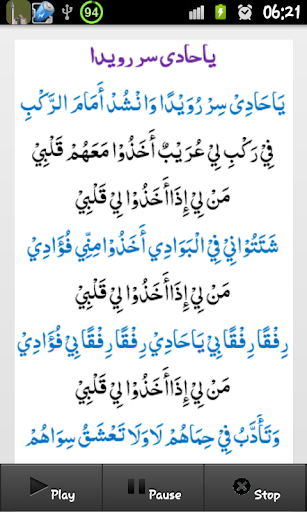 94
06:21
ياحادى سر رويدا
يَاحَادِيْ سِرْ رُوَيْدًا وَانْشُدْ أَمَامَ الرَّكْبِ
فِيْ رَكْبِ لِيْ عُرَيْبٌ أَخَذُوْا مَعَهُمْ قَلْبِيْ
مَنْ لِيْ إِذَاأَخَذُوْا لِيْ قَلْبِيْ
شَتَتُوْانِيْ فِيْ الْبَوَادِيْ أَخَذُوْا مِنِّي فُؤَادِيْ
مَنْ لِيْ إِذَاأَخَذُوْا لِيْ قَلْبِيْ
رِفْقًا رِفْقًا بِيْ يَاحَادِيْ رِفْقًا رِفْقًا بِيْ فُؤَادِيْ
مَنْ لِيْ إِذَاأَخَذُوْا لِيْ قَلْبِيْ
وَتَأَدَّبْ فِيْ حِمَاهُمْ لَاوَلَا تَعْشَقْ سِوَاهُمْ
Play
Pause
Stop